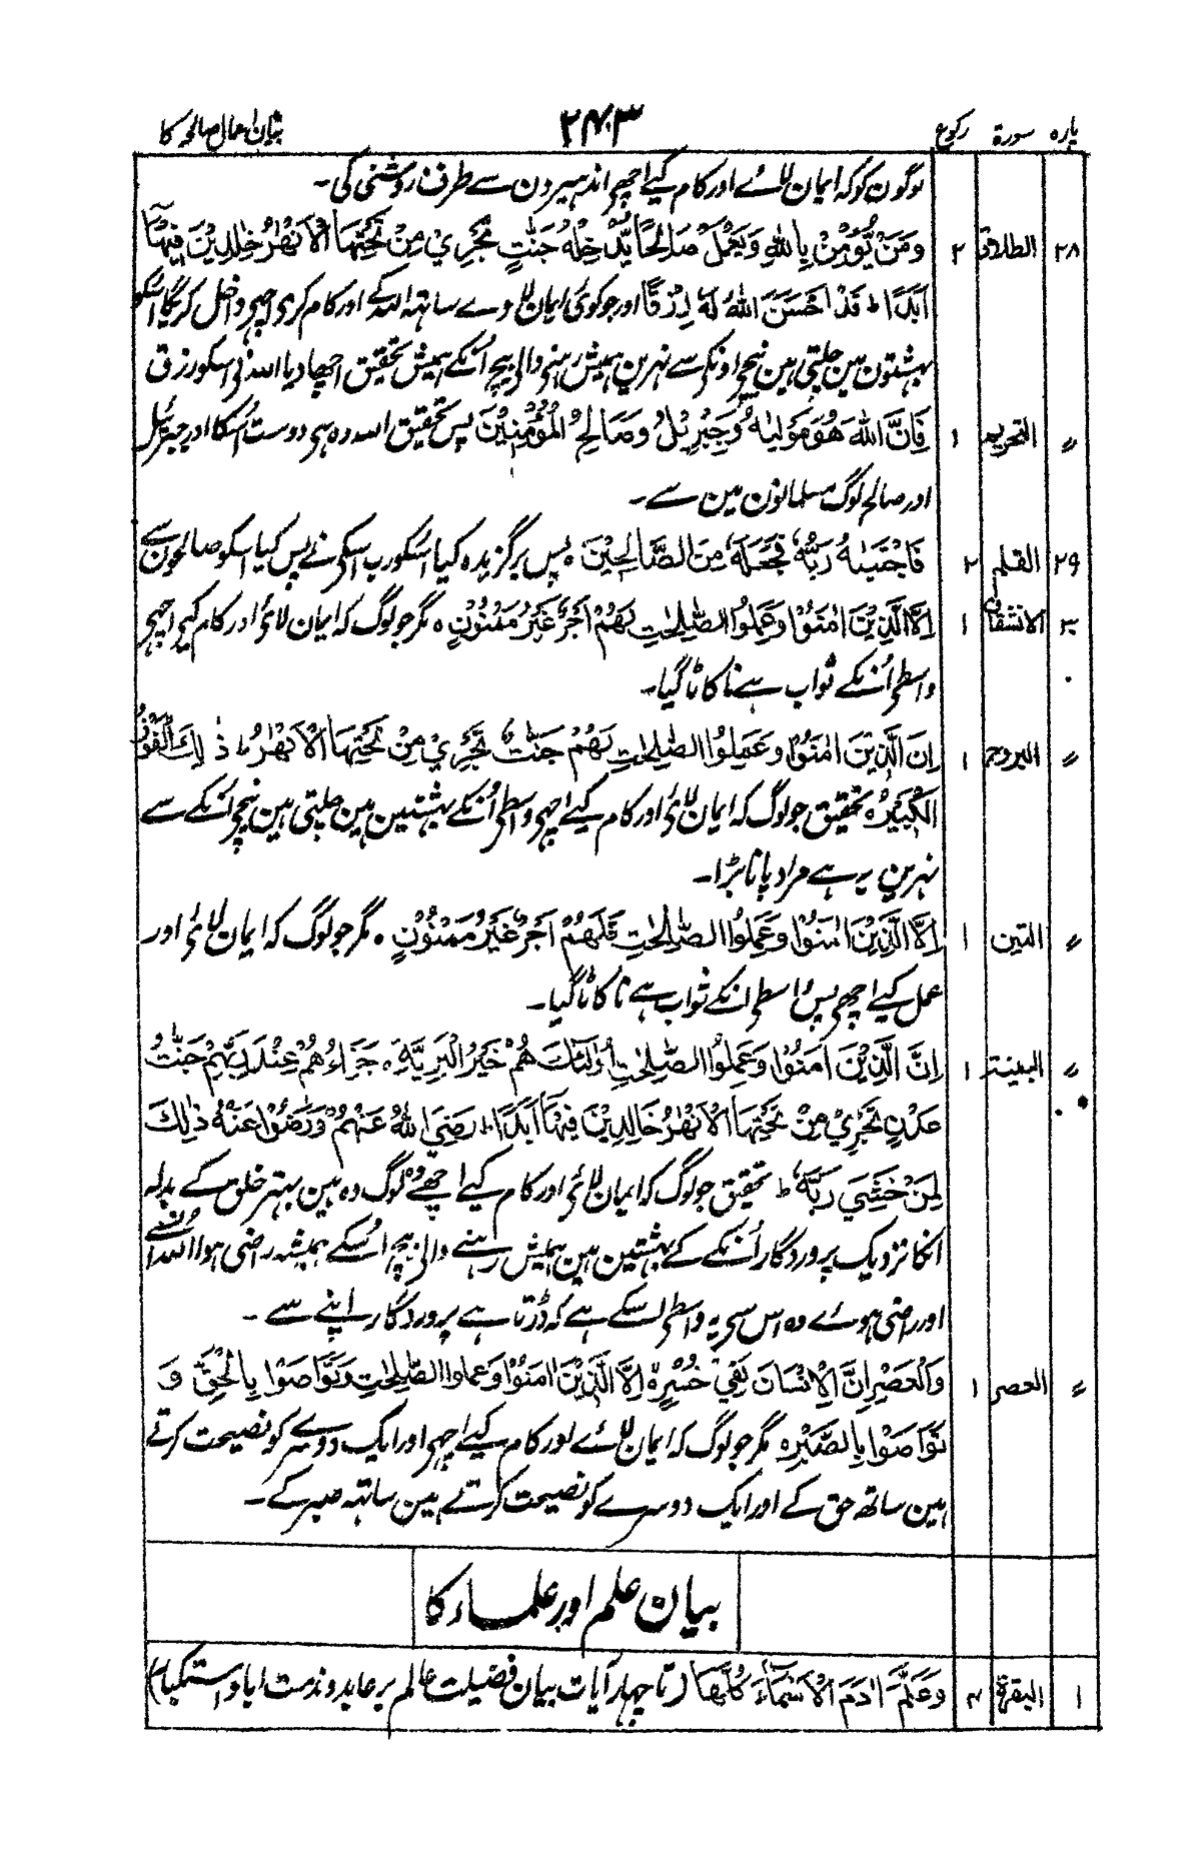 پارہ سورۃ رکوع ۲۴۳ بیان اعمال صالحہ کا
لوگون کو کہ ایمان لائے اور کام کیے اچھے اندہیرون سے طرف روشنی کی۔
۲۸ الطلاق ۲ وَمَنْ يُّؤْمِنْ بِاللّٰهِ وَيَعْمَلْ صَالِحًا يُّدْخِلْهُ جَنّٰتٍ تَجْرِيْ مِنْ تَحْتِهَا الْاَنْهٰرُ خٰلِدِيْنَ فِيْهَآ
اَبَدًا ط قَدْ اَحْسَنَ اللّٰهُ لَهٗ رِزْقًا اور جو کوئی ایمان لاوے ساتھ اللہ کے اور کام کرے اچھے داخل کریگا اسکو
بہشتون مین چلتی ہین نیچے اونکے سے نہرین ہمیش رہنے والے بیچ اُنکے ہمیش تحقیق اچھا دیا اللہ نے اسکو رزق
〃 التحریم ۱ فَاِنَّ اللّٰهَ هُوَ مَوْلٰىهُ وَجِبْرِيْلُ وَصَالِحُ الْمُؤْمِنِيْنَ پس تحقیق اللہ وہ ہے دوست اُسکا اور جبرئیل
اور صالح لوگ مسلمانون مین سے۔
۲۹ القلم ۲ فَاجْتَبٰىهُ رَبُّهٗ فَجَعَلَهٗ مِنَ الصَّالِحِيْنَ ہ پس برگزیدہ کیا اُسکو رب اسکے نے پس کیا اسکو صالحون سے
۳۰ الانشقاق ۱ اِلَّا الَّذِيْنَ اٰمَنُوْا وَعَمِلُوا الصّٰلِحٰتِ لَهُمْ اَجْرٌ غَيْرُ مَمْنُوْنٍ ہ مگر جو لوگ کہ ایمان لائے اور کام کیے اچھے
واسطے اُنکے ثواب ہے نا کاٹا گیا۔
〃 البروج ۱ اِنَّ الَّذِيْنَ اٰمَنُوْا وَعَمِلُوا الصّٰلِحٰتِ لَهُمْ جَنّٰتٌ تَجْرِيْ مِنْ تَحْتِهَا الْاَنْهٰرُ ط ذٰلِكَ الْفَوْزُ
الْكَبِيْرُ ہ تحقیق جو لوگ کہ ایمان لائے اور کام کیے اچھے واسطے اُنکے بہشتین ہین چلتی ہین نیچے اُنکے سے
نہرین یہ ہے مراد پانا بڑا۔
〃 التین ۱ اِلَّا الَّذِيْنَ اٰمَنُوْا وَعَمِلُوا الصّٰلِحٰتِ فَلَهُمْ اَجْرٌ غَيْرُ مَمْنُوْنٍ ہ مگر جو لوگ کہ ایمان لائے اور
عمل کیے اچھے پس واسطے انکے ثواب ہے نا کاٹا گیا۔
〃 البینۃ ۱ اِنَّ الَّذِيْنَ اٰمَنُوْا وَعَمِلُوا الصّٰلِحٰتِ اُولٰئِكَ هُمْ خَيْرُ الْبَرِيَّةِ ہ جَزَاءُهُمْ عِنْدَ رَبِّهِمْ جَنّٰتُ
عَدْنٍ تَجْرِيْ مِنْ تَحْتِهَا الْاَنْهٰرُ خَالِدِيْنَ فِيْهَا اَبَدًا ط رَضِيَ اللّٰهُ عَنْهُمْ وَرَضُوْا عَنْهُ ذٰلِكَ
لِمَنْ خَشِيَ رَبَّهٗ ط تحقیق جو لوگ کہ ایمان لائے اور کام کیے اچھے وہ لوگ وہ ہین بہتر خلق کے بدلہ
انکا نزدیک پروردگار اُنکے کے بہشتین ہین ہمیش رہنے والے بیچ اُسکے ہمیشہ راضی ہوا اللہ اُنسے
اور راضی ہوئے وہ اس سے یہ واسطے اُسکے ہے کہ ڈرتا ہے پروردگار اپنے سے۔
〃 العصر ۱ وَالْعَصْرِ اِنَّ الْاِنْسَانَ لَفِيْ خُسْرٍ ہ اِلَّا الَّذِيْنَ اٰمَنُوْا وَعَمِلُوا الصّٰلِحٰتِ وَتَوَاصَوْا بِالْحَقِّ وَ
تَوَاصَوْا بِالصَّبْرِ ہ مگر جو لوگ کہ ایمان لائے اور کام کیے اچھے اور ایک دوسرے کو نصیحت کرتے
ہین ساتھ حق کے اور ایک دوسرے کو نصیحت کرتے ہین ساتہ صبر کے۔
بیان علم اور علماء کا
۱ البقرۃ ۴ وَعَلَّمَ اٰدَمَ الْاَسْمَآءَ كُلَّهَا (تا چہار آیات بیان فضیلت عالم بر عابد و مذمت ابا و استکبار)